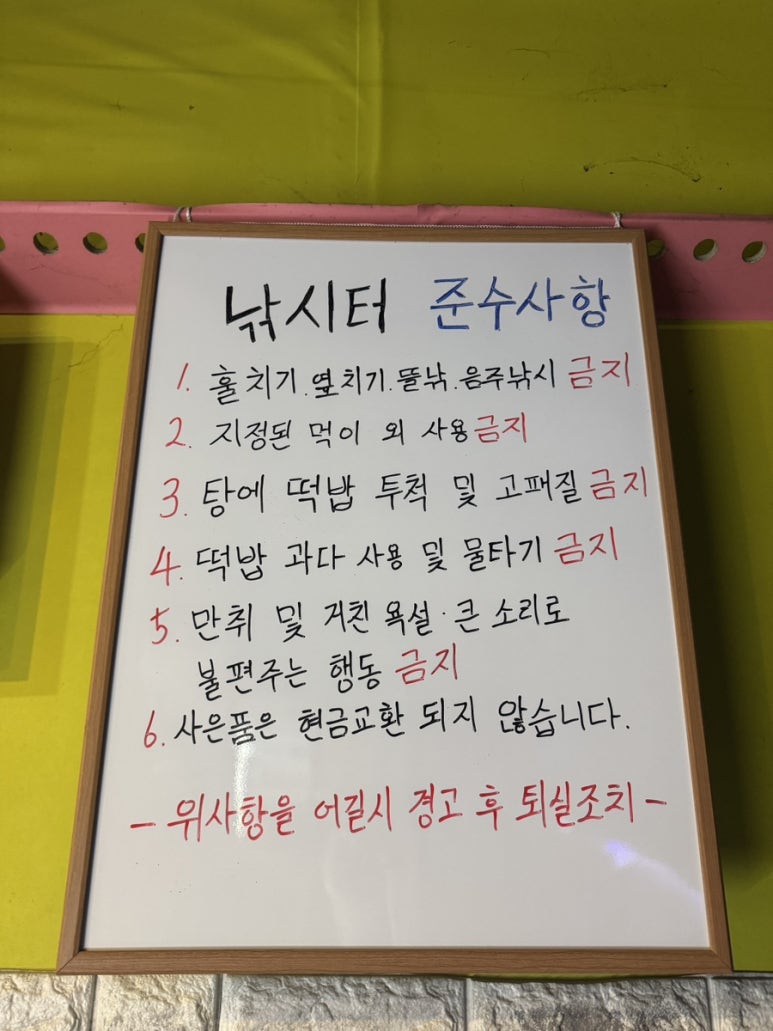 낚시터 준수사항
1. 훌치기.옆치기.뜰낚.음주낚시 금지
2. 지정된 먹이 외 사용금지
3. 탕에 떡밥 투척 및 고패질 금지
4. 떡밥 과다 사용 및 물타기 금지
5. 만취 및 거친 욕설·큰 소리로
불편주는 행동 금지
6. 사은품은 현금교환 되지 않습니다.
- 위사항을 어길시 경고 후 퇴실조치 -